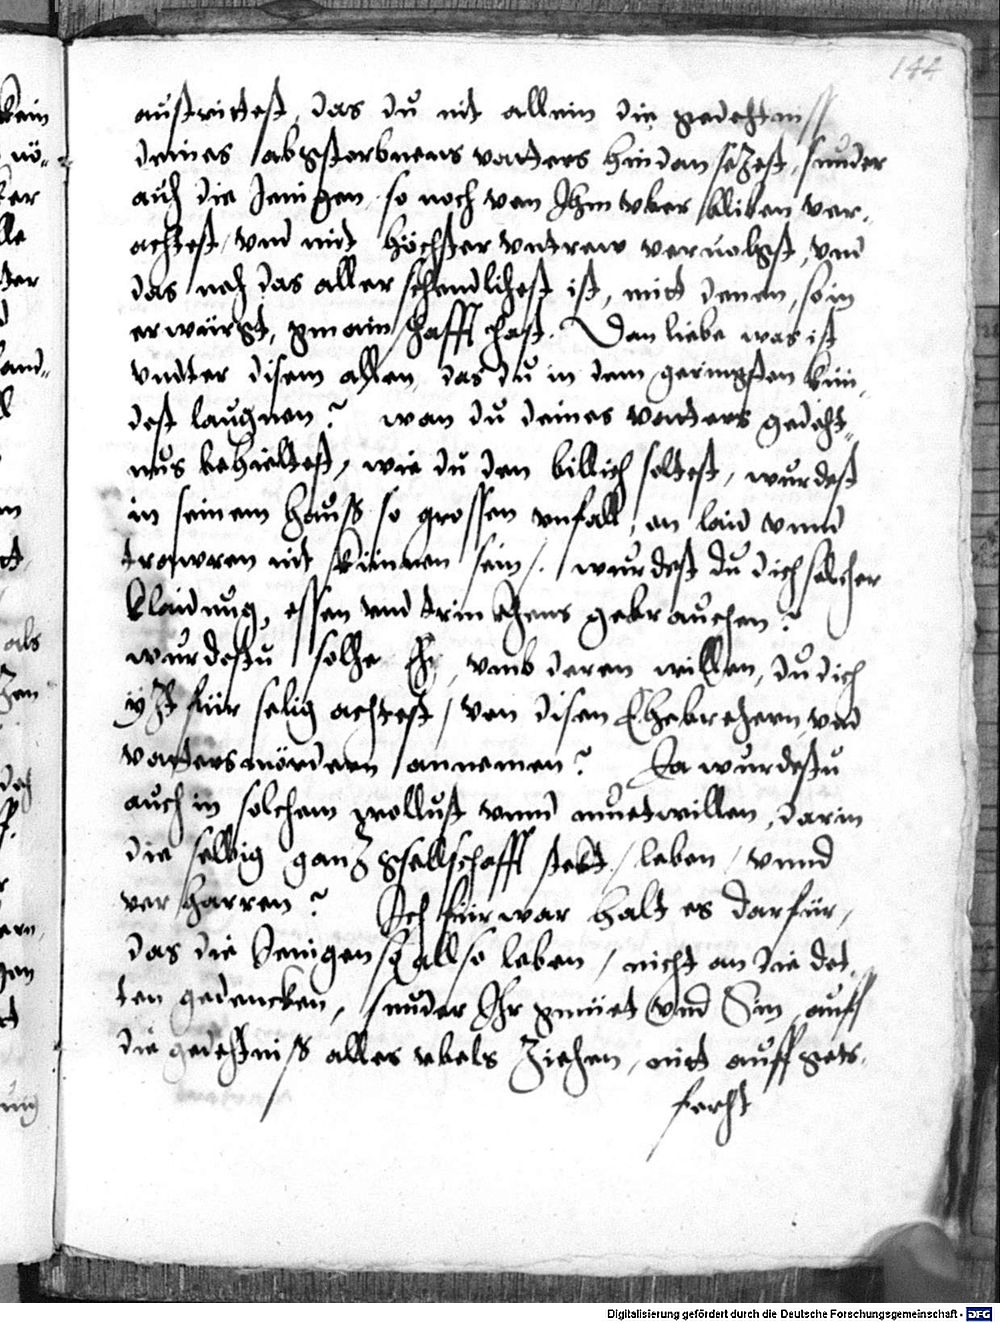 144
austrittest, das du nit allein die gedechtniss
deines abgstorbnens vatters hindan sezest, sunder
auch die Jenigen, so noch von Ihm vber bliben ver-
achtest, vnd mit höchster vntrew veruolgst, vnd
das noch das aller schendlichest ist, mitt denen, so in
erwürgt, gmainschafft hast. Dan liebe was ist
vndter disem allen, das du in dem geringsten kün-
dest laugnen? wan du deines vatters gedecht-
nus behieltest, wie du den billich soltest, wurdest
in seinem hauss so grossen vnfall, on laid vnnd
trawren nit künnen sein. wurdest du dich solcher
klaidung, essen vnd trinckhens gebrauchen?
wurdestu solche Eh, vmb deren willen, du dich
yzt für selig achtest, von disen Ehebrechern, vnd
vattersmördern annemen? Ja wurdestu
auch in solchem wollust vnnd muetwillen, darin
die selbig ganz gsellschafft stekt, leben, vnnd
verharren? Ich fürwar halt es darfür,
das die Jenigen so allso leben, nicht an die dot-
ten gedencken, sunder Ihr gmüet vnd Sin, auff
die gedechtniss alles vbels ziehen, mitt auffgets-
fercht
als
Digitalisierung gefördert durch die Deutsche Forschungsgemeinschaft - DFG